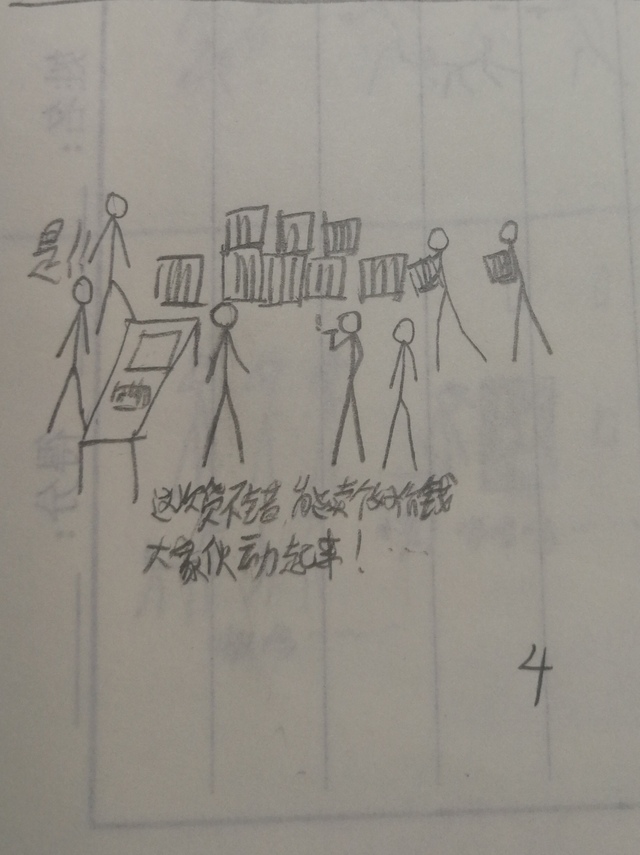 是!!
这次货不错,能卖个好价钱
大家伙动起来!……
4